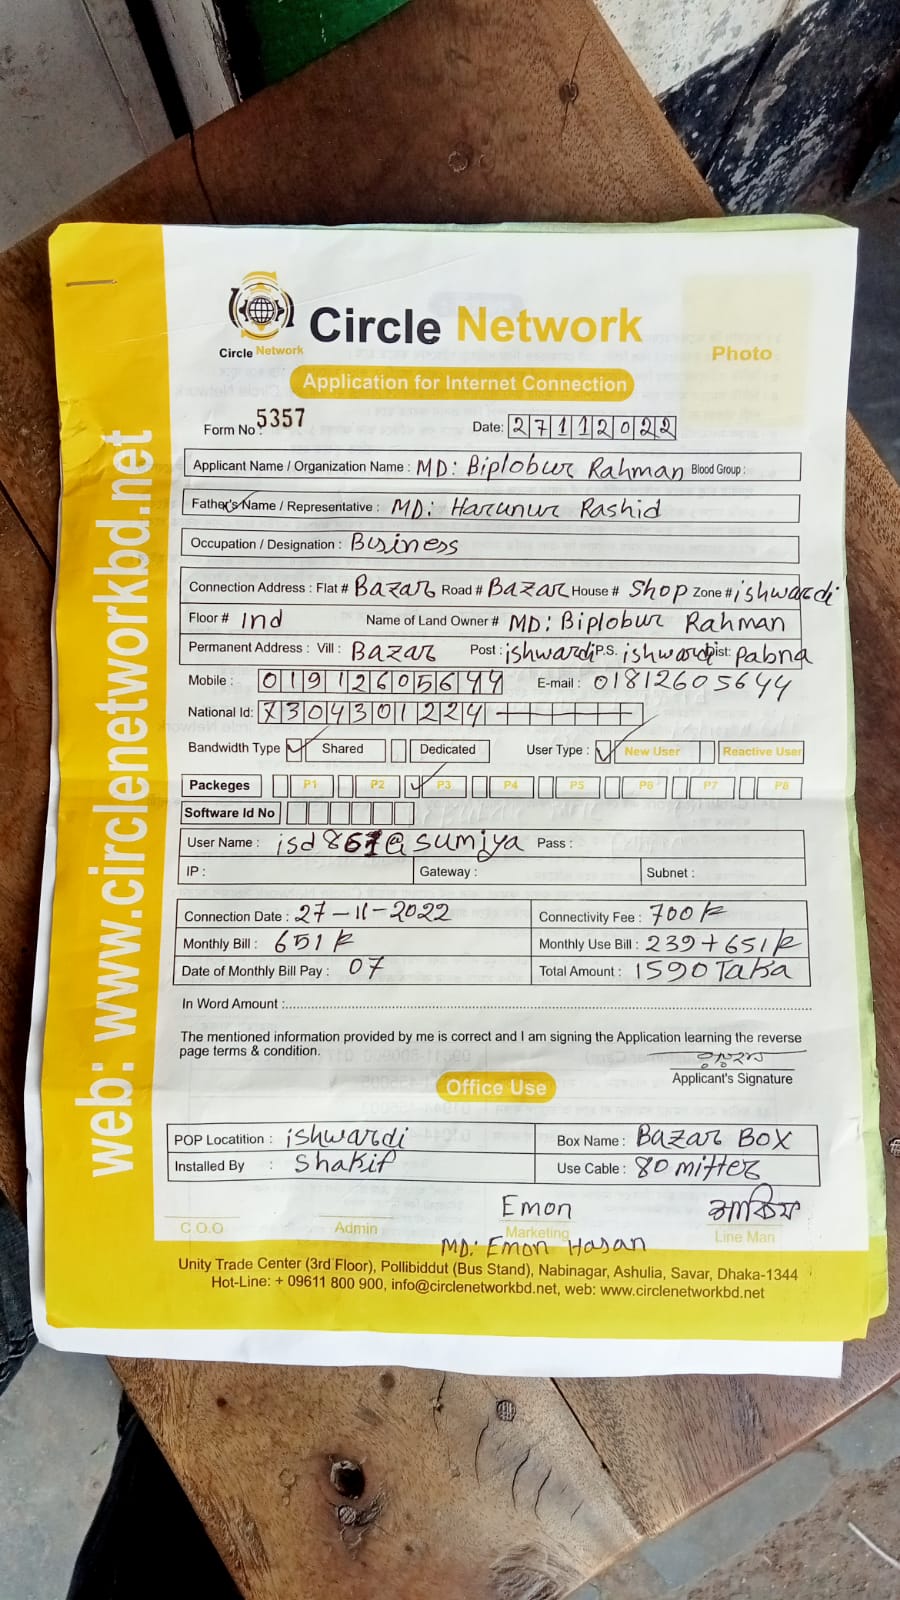 Circle Network
Circle Network
Photo
Application for Internet Connection
Form No: 5357
Date: 27112022
Applicant Name / Organization Name : MD: Biplobur Rahman Blood Group :
Father's Name / Representative : MD: Harunur Rashid
Occupation / Designation : Business
Connection Address : Flat # Bazar Road # Bazar House # Shop Zone # ishwardi
Floor # 1nd Name of Land Owner # MD: Biplobur Rahman
Permanent Address : Vill : Bazar Post : ishwardi P.S. ishwardi Dist: Pabna
Mobile : 01912605644 E-mail : 01812605644
National Id: 7304301224
Bandwidth Type Shared Dedicated User Type : New User Reactive User
Packeges P1 P2 P3 P4 P5 P6 P7 P8
Software Id No
User Name : isd861@sumiya Pass :
IP : Gateway : Subnet :
Connection Date : 27-11-2022 Connectivity Fee : 700 k
Monthly Bill : 651 k Monthly Use Bill : 239+651 k
Date of Monthly Bill Pay : 07 Total Amount : 1590 Taka
In Word Amount :
The mentioned information provided by me is correct and I am signing the Application learning the reverse
page terms & condition.
Applicant's Signature
Office Use
POP Locatition : ishwardi Box Name : Bazar Box
Installed By : Shakif Use Cable : 80 mitter
Emon
C.O.O Admin Marketing Line Man
MD: Emon Hasan
Unity Trade Center (3rd Floor), Pollibiddut (Bus Stand), Nabinagar, Ashulia, Savar, Dhaka-1344
Hot-Line: + 09611 800 900, info@circlenetworkbd.net, web: www.circlenetworkbd.net
web: www.circlenetworkbd.net